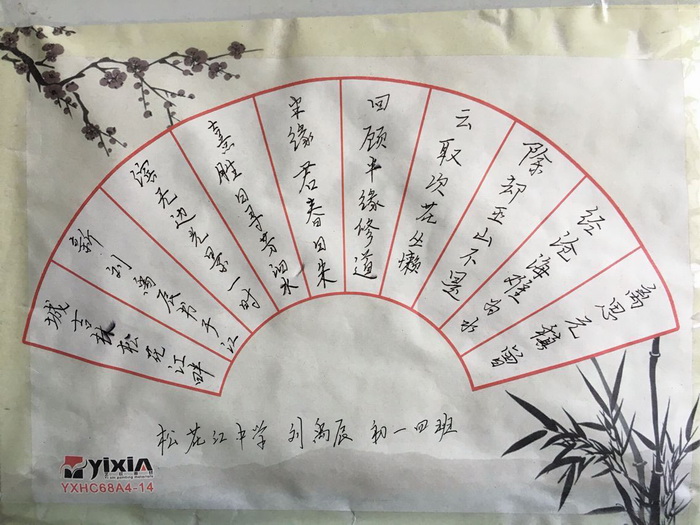 离思元稹曾
经沧海难为水
除却巫山不是
云取次花丛懒
回顾半缘修道
半缘君春日朱
熹胜日寻芳泗水
滨无边光景一时
新刘禹辰书于江
城吉林松花江畔
松花江中学 刘禹辰 初一四班
yixiA
YXHC68A4-14